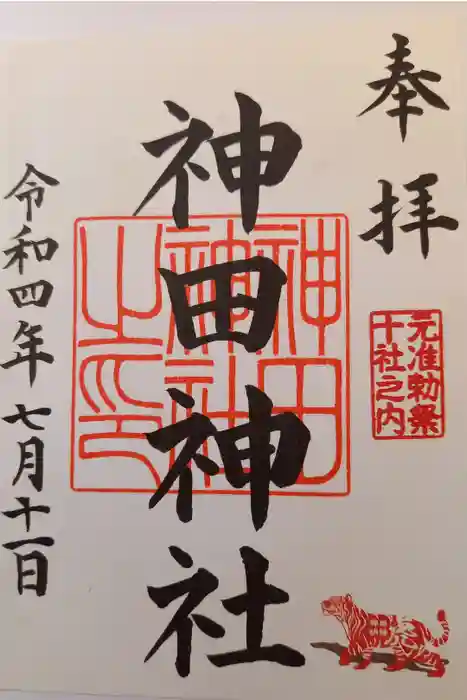 奉拝
元准勅祭
十社之内
神田神社
神田神社之印
令和四年七月十一日